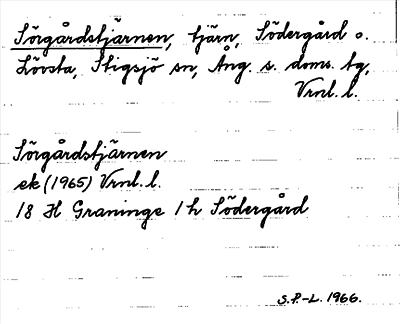 Sörgårdstjärnen, tjärn, Södergård o.
Lövsta, Stigsjö sn, Ång. s. doms. tg,
Vrnl. l.
Sörgårdstjärnen
ek (1965) Vrnl. l.
18 H Graninge 1 h Södergård
S.P.-L. 1966.